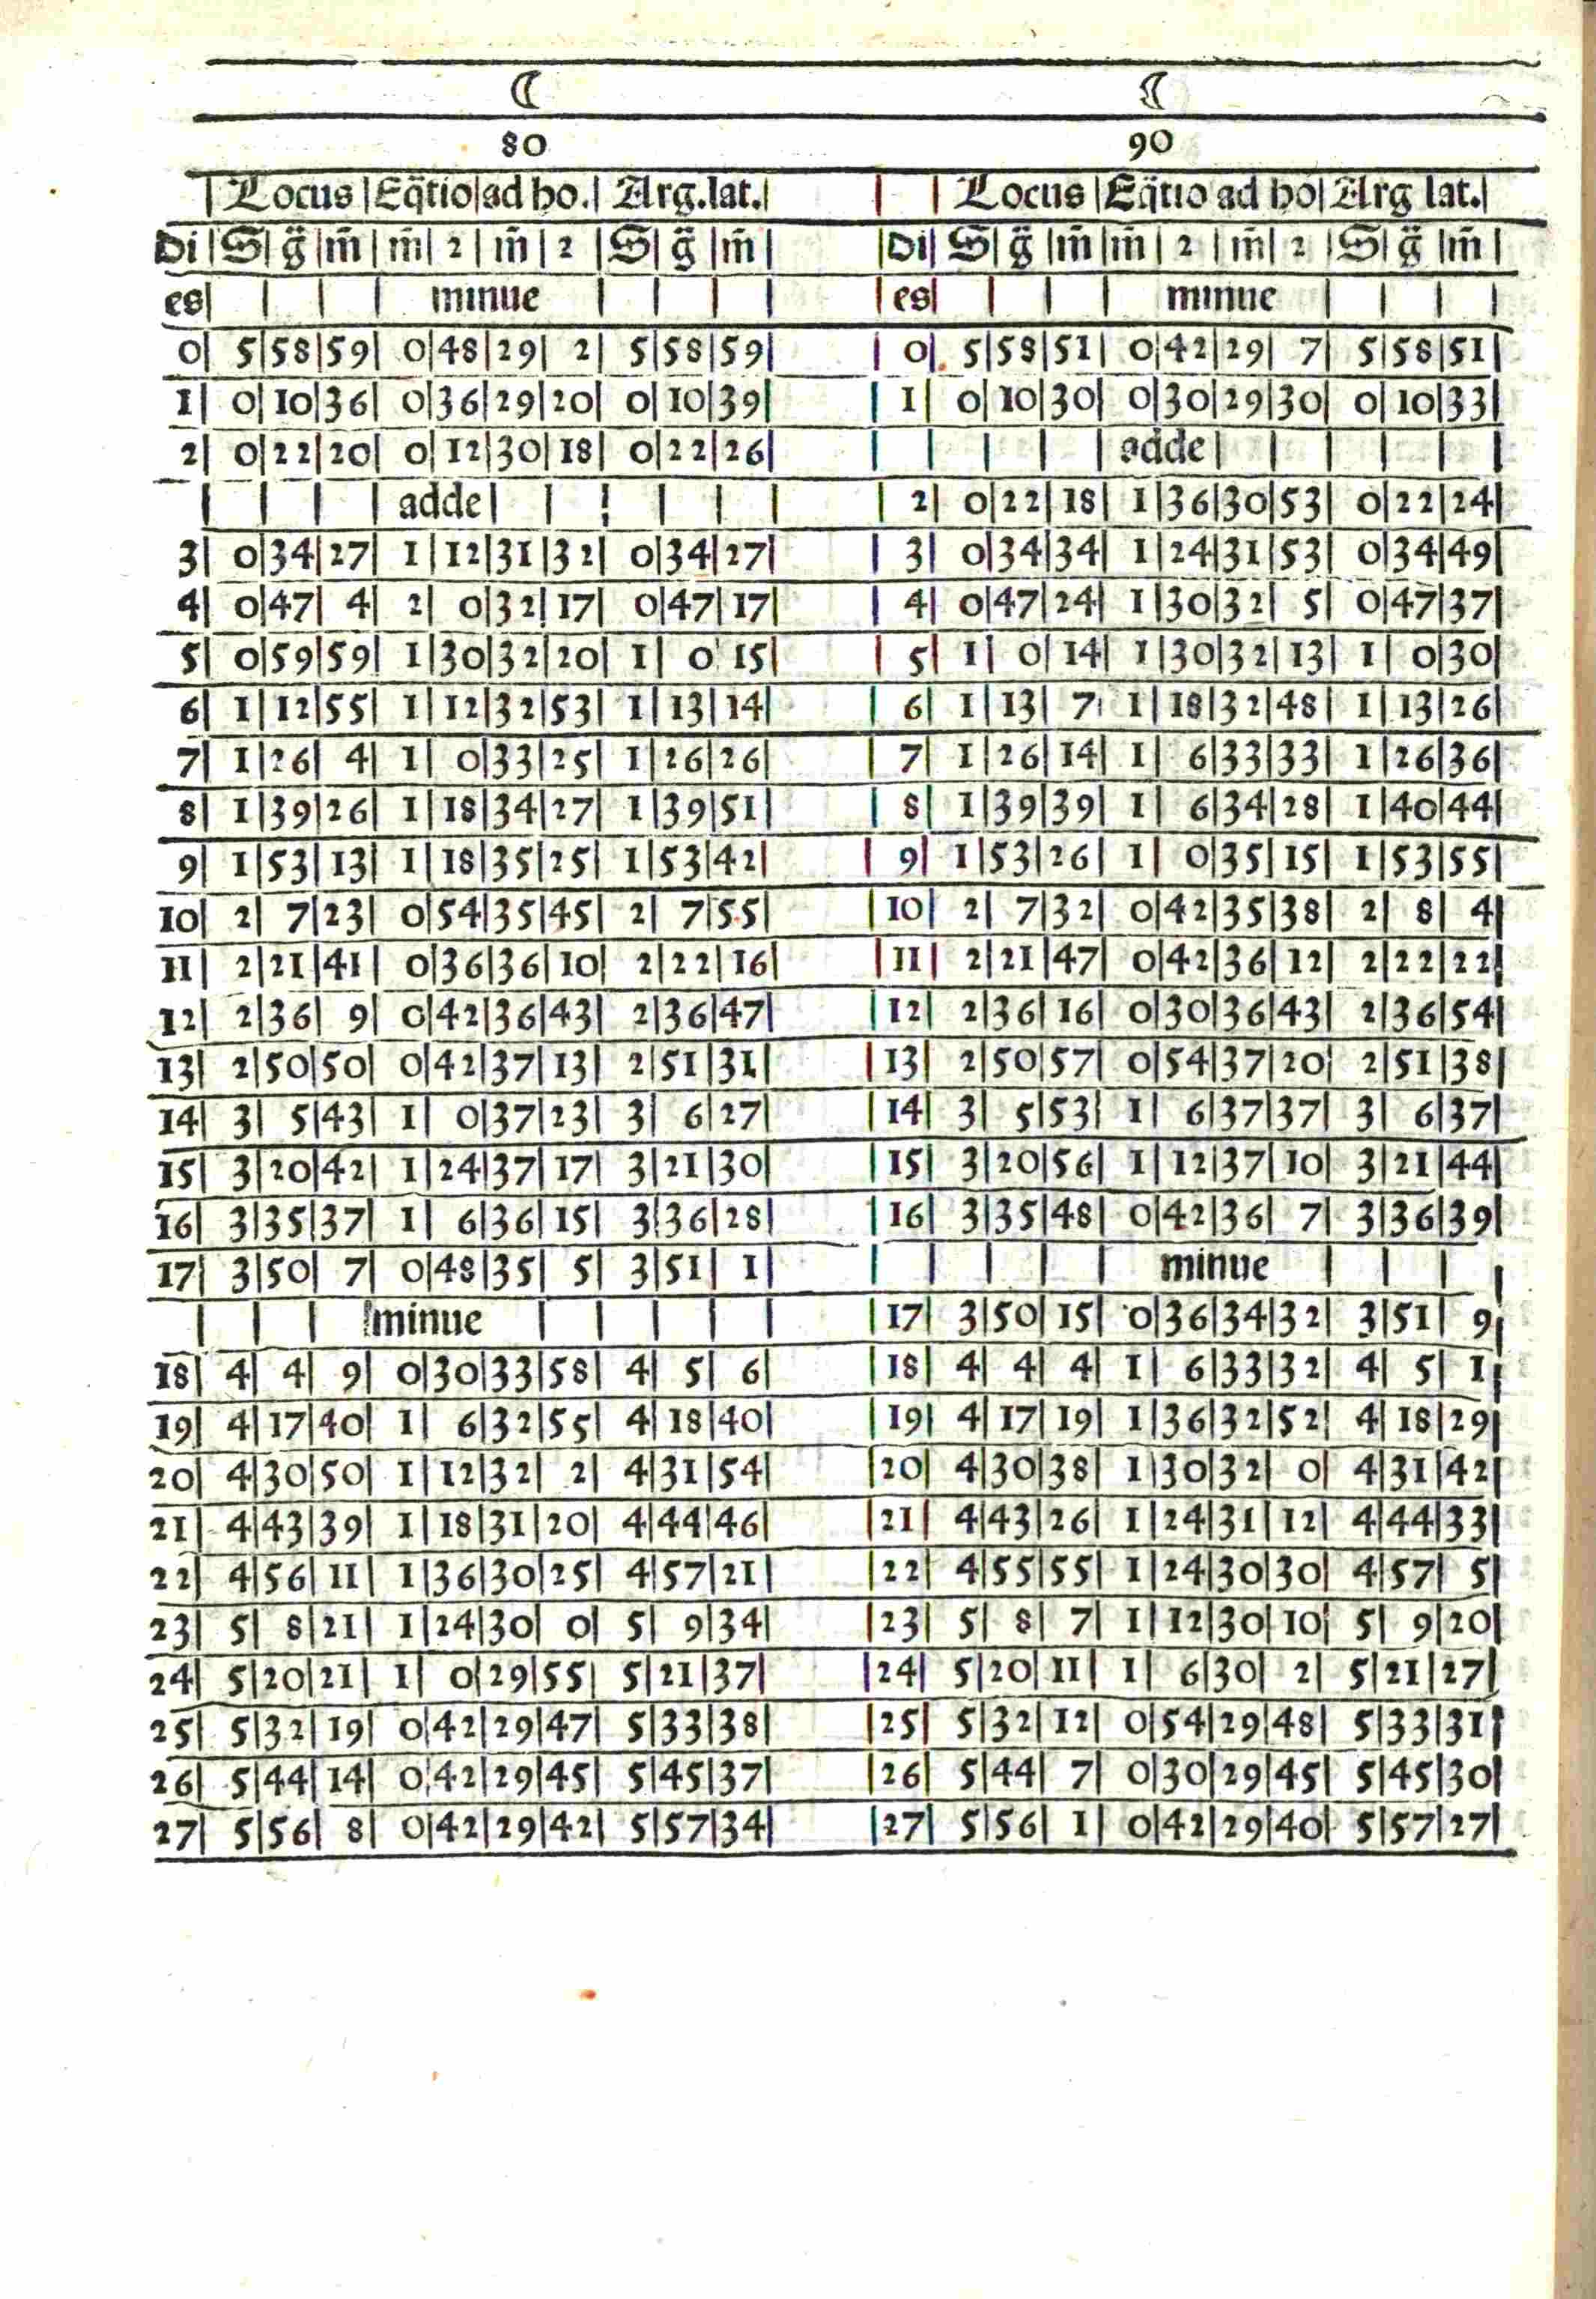 ☾ ☾
80 90
| Locus | Eq̃tio | ad ho. | Arg.lat. | | | Locus | Eq̃tio ad ho | Arg lat. |
Di | S | g̃ | m̃ | m̃ | 2 | m̃ | 2 | S | g̃ | m̃ | | Di | S | g̃ | m̃ | m̃ | 2 | m̃ | 2 | S | g̃ | m̃ |
es | | | | minue | | | | | es | | | | minue | | | |
0 | 5 | 58 | 59 | 0 | 48 | 29 | 2 | 5 | 58 | 59 | | 0 | 5 | 58 | 51 | 0 | 42 | 29 | 7 | 5 | 58 | 51 |
1 | 0 | 10 | 36 | 0 | 36 | 29 | 20 | 0 | 10 | 39 | | 1 | 0 | 10 | 30 | 0 | 30 | 29 | 30 | 0 | 10 | 33 |
2 | 0 | 22 | 20 | 0 | 12 | 30 | 18 | 0 | 22 | 26 | | | | | | adde | | | | | |
| | | | adde | | | | | | | 2 | 0 | 22 | 18 | 1 | 36 | 30 | 53 | 0 | 22 | 24 |
3 | 0 | 34 | 27 | 1 | 12 | 31 | 32 | 0 | 34 | 27 | | 3 | 0 | 34 | 34 | 1 | 24 | 31 | 53 | 0 | 34 | 49 |
4 | 0 | 47 | 4 | 2 | 0 | 32 | 17 | 0 | 47 | 17 | | 4 | 0 | 47 | 24 | 1 | 30 | 32 | 5 | 0 | 47 | 37 |
5 | 0 | 59 | 59 | 1 | 30 | 32 | 20 | 1 | 0 | 15 | | 5 | 1 | 0 | 14 | 1 | 30 | 32 | 13 | 1 | 0 | 30 |
6 | 1 | 12 | 55 | 1 | 12 | 32 | 53 | 1 | 13 | 14 | | 6 | 1 | 13 | 7 | 1 | 18 | 32 | 48 | 1 | 13 | 26 |
7 | 1 | 26 | 4 | 1 | 0 | 33 | 25 | 1 | 26 | 26 | | 7 | 1 | 26 | 14 | 1 | 6 | 33 | 33 | 1 | 26 | 36 |
8 | 1 | 39 | 26 | 1 | 18 | 34 | 27 | 1 | 39 | 51 | | 8 | 1 | 39 | 39 | 1 | 6 | 34 | 28 | 1 | 40 | 44 |
9 | 1 | 53 | 13 | 1 | 18 | 35 | 25 | 1 | 53 | 42 | | 9 | 1 | 53 | 26 | 1 | 0 | 35 | 15 | 1 | 53 | 55 |
10 | 2 | 7 | 23 | 0 | 54 | 35 | 45 | 2 | 7 | 55 | | 10 | 2 | 7 | 32 | 0 | 42 | 35 | 38 | 2 | 8 | 4 |
11 | 2 | 21 | 41 | 0 | 36 | 36 | 10 | 2 | 22 | 16 | | 11 | 2 | 21 | 47 | 0 | 42 | 36 | 12 | 2 | 22 | 22 |
12 | 2 | 36 | 9 | 0 | 42 | 36 | 43 | 2 | 36 | 47 | | 12 | 2 | 36 | 16 | 0 | 30 | 36 | 43 | 2 | 36 | 54 |
13 | 2 | 50 | 50 | 0 | 42 | 37 | 13 | 2 | 51 | 31 | | 13 | 2 | 50 | 57 | 0 | 54 | 37 | 20 | 2 | 51 | 38 |
14 | 3 | 5 | 43 | 1 | 0 | 37 | 23 | 3 | 6 | 27 | | 14 | 3 | 5 | 53 | 1 | 6 | 37 | 37 | 3 | 6 | 37 |
15 | 3 | 20 | 42 | 1 | 24 | 37 | 17 | 3 | 21 | 30 | | 15 | 3 | 20 | 56 | 1 | 12 | 37 | 10 | 3 | 21 | 44 |
16 | 3 | 35 | 37 | 1 | 6 | 36 | 15 | 3 | 36 | 28 | | 16 | 3 | 35 | 48 | 0 | 42 | 36 | 7 | 3 | 36 | 39 |
17 | 3 | 50 | 7 | 0 | 48 | 35 | 5 | 3 | 51 | 1 | | | | | | minue | | | |
| | | minue | | | | | | 17 | 3 | 50 | 15 | 0 | 36 | 34 | 32 | 3 | 51 | 9 |
18 | 4 | 4 | 9 | 0 | 30 | 33 | 58 | 4 | 5 | 6 | | 18 | 4 | 4 | 4 | 1 | 6 | 33 | 32 | 4 | 5 | 1 |
19 | 4 | 17 | 40 | 1 | 6 | 32 | 55 | 4 | 18 | 40 | | 19 | 4 | 17 | 19 | 1 | 36 | 32 | 52 | 4 | 18 | 29 |
20 | 4 | 30 | 50 | 1 | 12 | 32 | 2 | 4 | 31 | 54 | | 20 | 4 | 30 | 38 | 1 | 30 | 32 | 0 | 4 | 31 | 42 |
21 | 4 | 43 | 39 | 1 | 18 | 31 | 20 | 4 | 44 | 46 | | 21 | 4 | 43 | 26 | 1 | 24 | 31 | 12 | 4 | 44 | 33 |
22 | 4 | 56 | 11 | 1 | 36 | 30 | 25 | 4 | 57 | 21 | | 22 | 4 | 55 | 55 | 1 | 24 | 30 | 30 | 4 | 57 | 5 |
23 | 5 | 8 | 21 | 1 | 24 | 30 | 0 | 5 | 9 | 34 | | 23 | 5 | 8 | 7 | 1 | 12 | 30 | 10 | 5 | 9 | 20 |
24 | 5 | 20 | 21 | 1 | 0 | 29 | 55 | 5 | 21 | 37 | | 24 | 5 | 20 | 11 | 1 | 6 | 30 | 2 | 5 | 21 | 27 |
25 | 5 | 32 | 19 | 0 | 42 | 29 | 47 | 5 | 33 | 38 | | 25 | 5 | 32 | 12 | 0 | 54 | 29 | 48 | 5 | 33 | 31 |
26 | 5 | 44 | 14 | 0 | 42 | 29 | 45 | 5 | 45 | 37 | | 26 | 5 | 44 | 7 | 0 | 30 | 29 | 45 | 5 | 45 | 30 |
27 | 5 | 56 | 8 | 0 | 42 | 29 | 42 | 5 | 57 | 34 | | 27 | 5 | 56 | 1 | 0 | 42 | 29 | 40 | 5 | 57 | 27 |